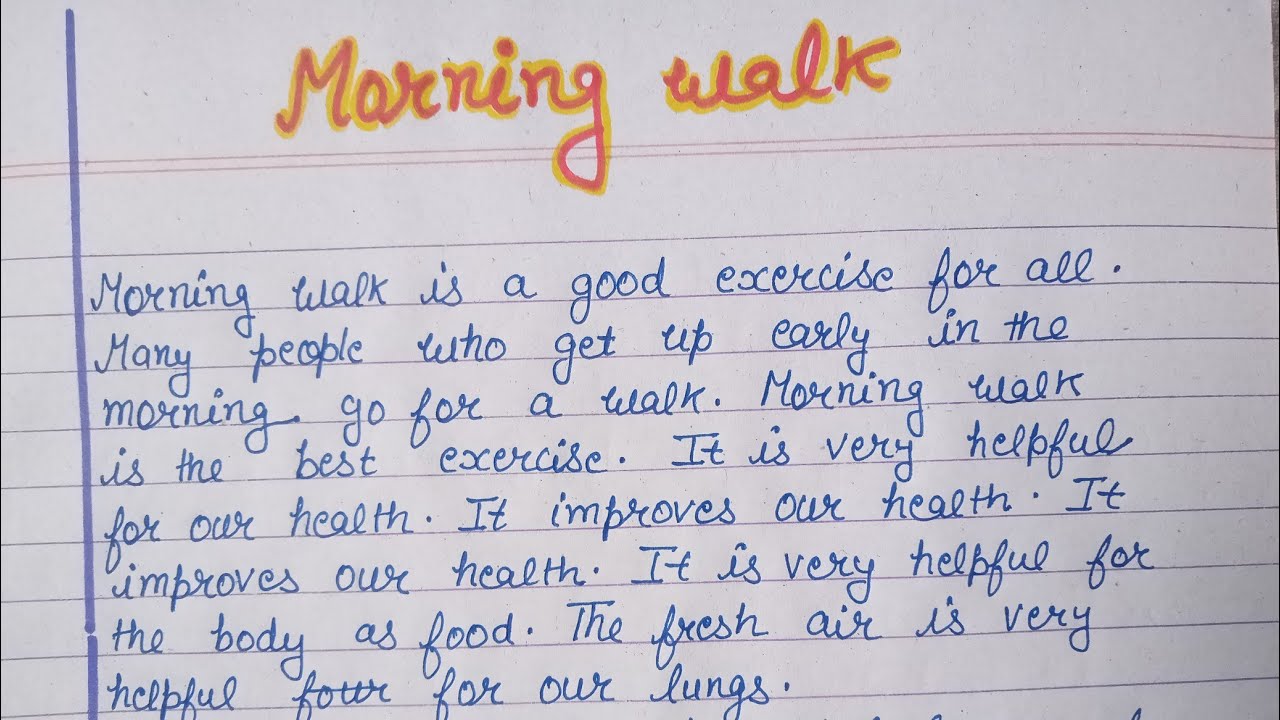 Morning walk
Morning walk is a good exercise for all.
Many people who get up early in the
morning. go for a walk. Morning walk
is the best exercise. It is very helpful
for our health. It improves our health. It
improves our health. It is very helpful for
the body as food. The fresh air is very
helpful four for our lungs.